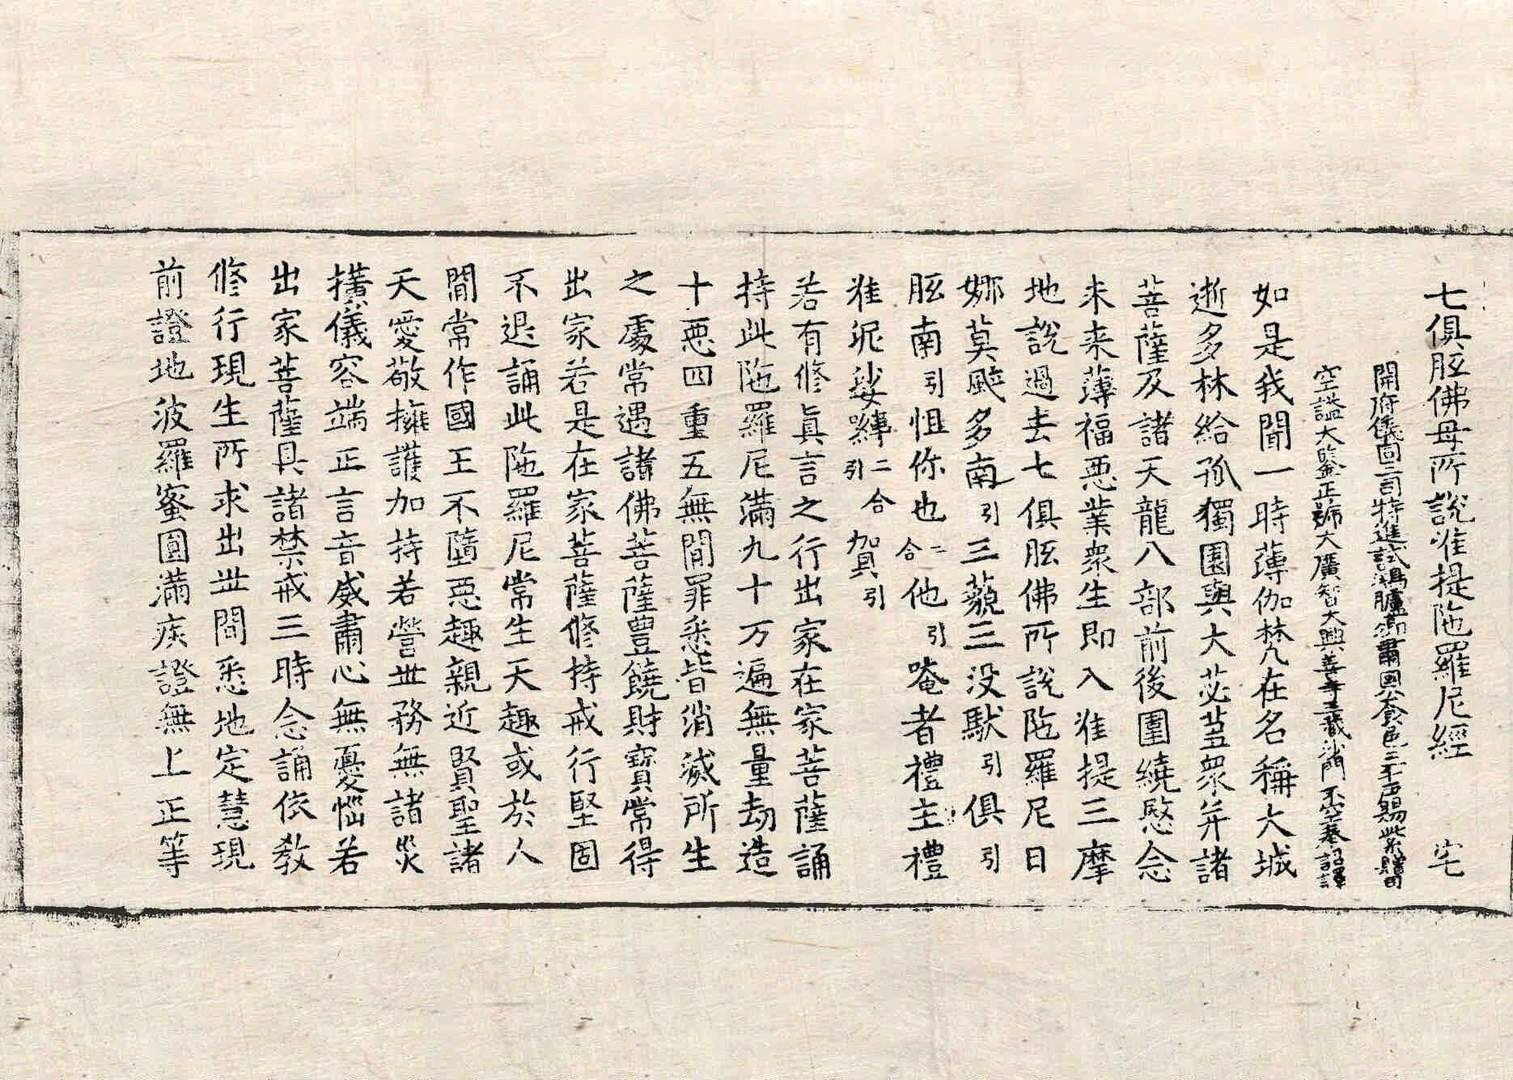 七俱胝佛母所說准提陁羅尼經　宅
開府儀同三司特進試鴻臚卿肅國公食邑三千戶賜紫贈司
空謚大鑒正號大廣智大興善寺三藏沙門不空奉詔譯
如是我聞一時薄伽梵在名稱大城
逝多林給孤獨園與大苾芻衆并諸
菩薩及諸天龍八部前後圍繞愍念
未来薄福惡業衆生即入准提三摩
地說過去七俱胝佛所說陁羅尼曰
娜莫颯多南引三藐三没馱引俱引
胝南引怛你也二合他引唵者禮主禮
准泥娑嚩二合引賀引
若有修眞言之行出家在家菩薩誦
持此陁羅尼滿九十万遍無量劫造
十惡四重五無間罪悉皆消滅所生
之處常遇諸佛菩薩豊饒財寶常得
出家若是在家菩薩修持戒行堅固
不退誦此陁羅尼常生天趣或於人
間常作國王不墮惡趣親近賢聖諸
天愛敬擁護加持若營世務無諸災
橫儀容端正言音威肅心無憂惱若
出家菩薩具諸禁戒三時念誦依教
修行現生所求出世間悉地定慧現
前證地波羅蜜圓滿疾證無上正等